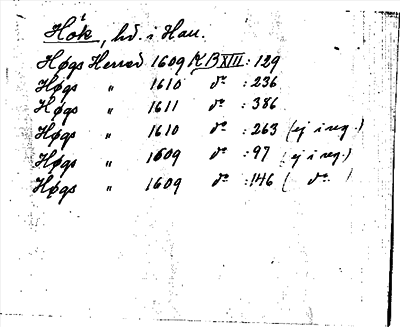 Hök, hd. i Hall.
Høgs Herred 1609 KBXIII: 129
Høgs " 1610 do : 236
Høgs " 1611 do : 386
Høgs " 1610 do : 263 (ej i reg.)
Høgs " 1609 do : 97 (ej i reg.)
Høgs " 1609 do : 146 ( do )